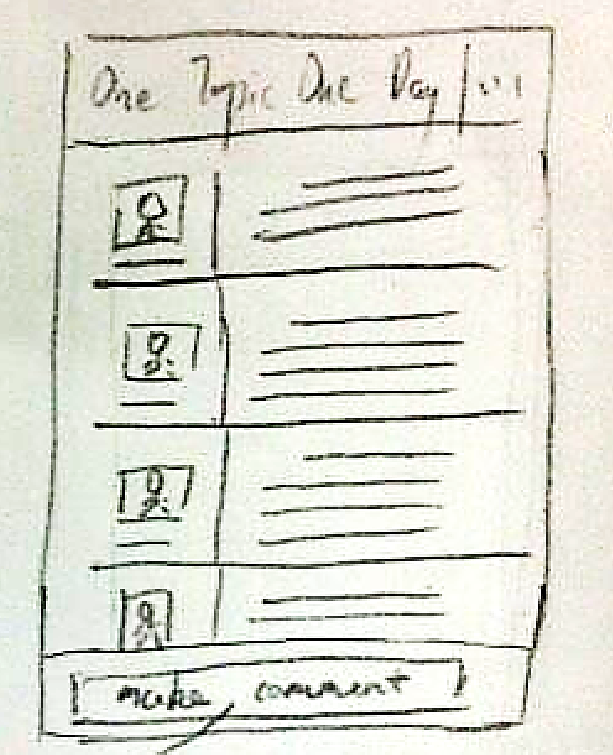 One Topic One Day
make comment